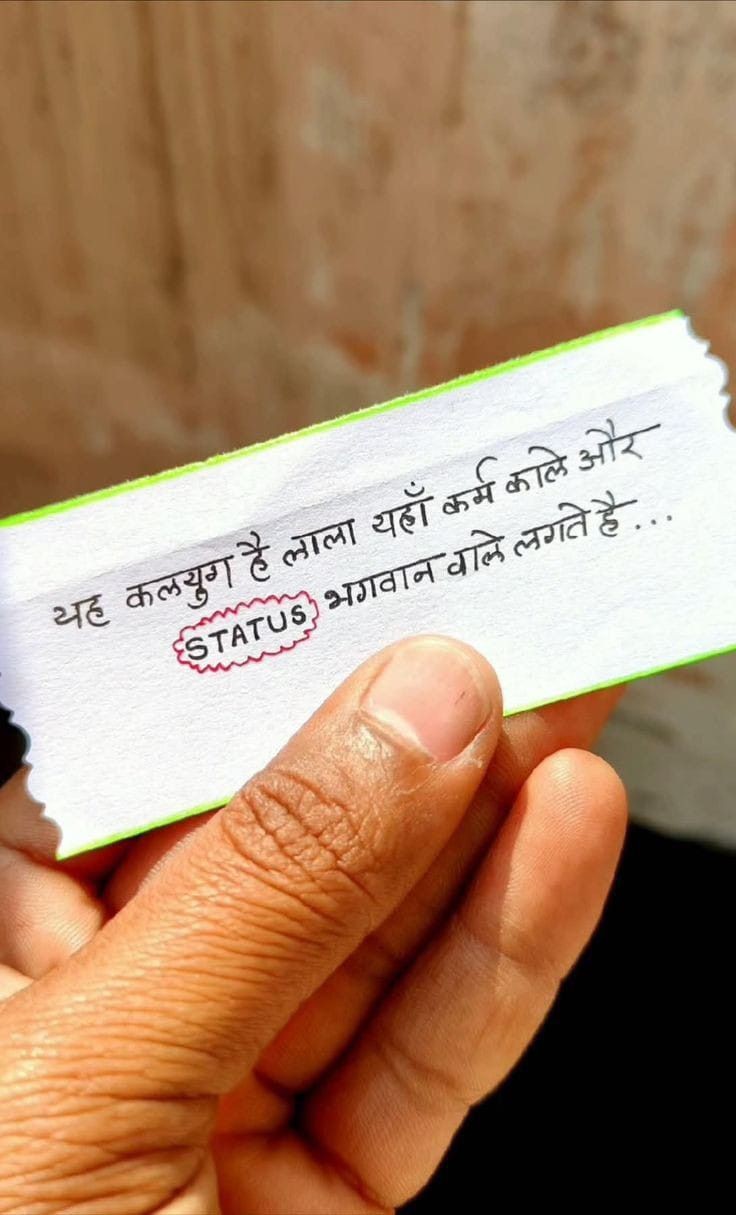 यह कलयुग है लाला यहाँ कर्म काले और
STATUS भगवान वाले लगते है...